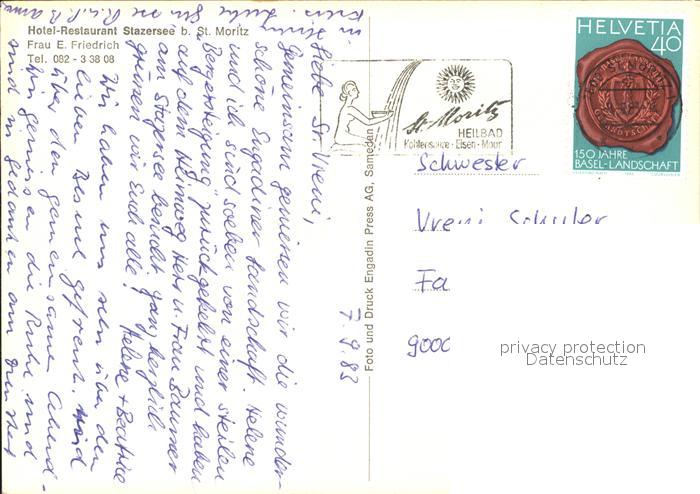 Hotel-Restaurant Stazersee b. St. Moritz
Frau E. Friedrich
Tel. 082 - 3 38 08
Liebe Sr. Vreni,
Gemeinsam geniessen wir die wunder-
schöne Engadiner Landschaft. Helene
und ich sind soeben von einer steilen
"Bergsteigung" zurückgekehrt und haben
auf dem Heimweg Herr u. Frau Baumer
am Stazersee besucht. Ganz herzlich
grüssen wir Euch alle!
Helene + Beatrice
Wir haben uns sehr über den
lieben Besuch gefreut. Und
über den gemeinsamen Abend-
Wir geniessen die Ruhe und
sind in Gedanken
7.9.83
Foto und Druck Engadin Press AG, Samedan
St. Moritz
HEILBAD
Kohlensäure · Eisen · Moor
HELVETIA
40
150 JAHRE
BASEL-LANDSCHAFT
Schwester
Vreni Schuler
Fa
9000
privacy protection
Datenschutz